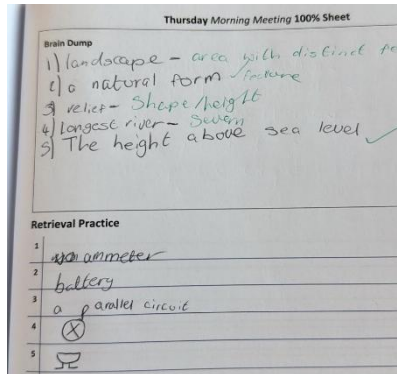 Thursday Morning Meeting 100% Sheet
Brain Dump
1) landscape - area with distinct fe
2) a natural form feature
3) relief - Shape/height
4) Longest river - Severn
5) The height above sea level
Retrieval Practice
1 ammeter
2 battery
3 a parallel circuit
4
5